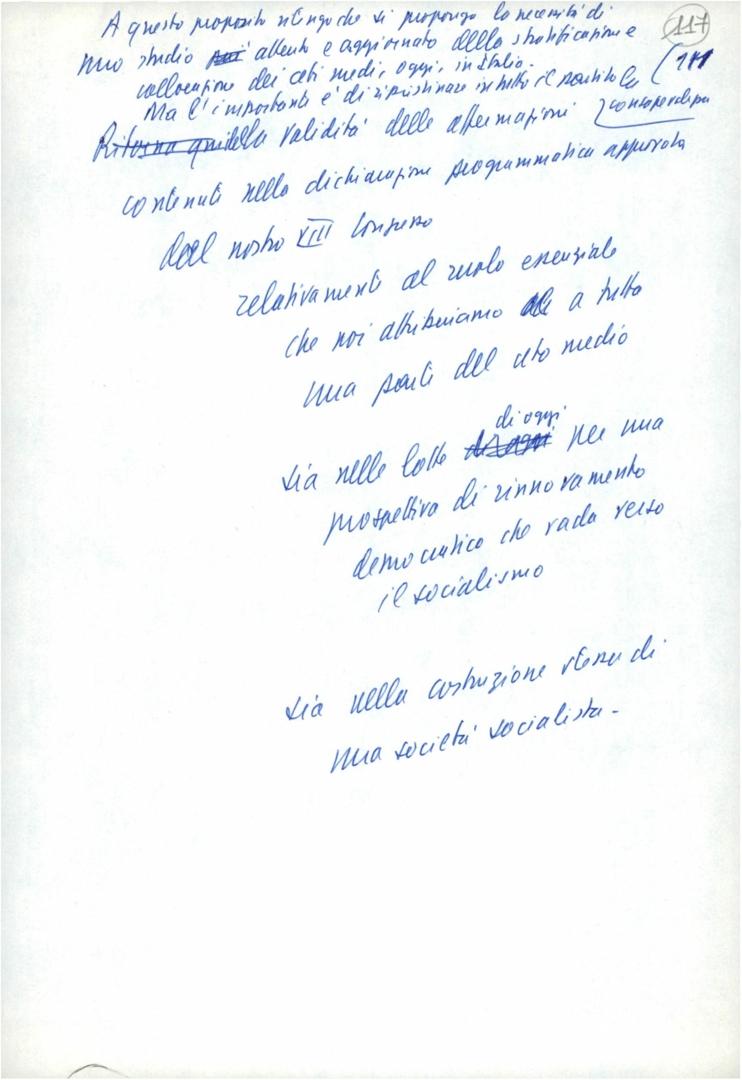 117
A questo proposito ritengo che si proponga la necessità di
uno studio più attento e aggiornato della stratificazione e
collocazione dei ceti medi, oggi, in Italia.
Ma l'importante è di ripristinare in tutto il partito la
consapevolezza
Ritorna quindi della validità delle affermazioni
contenute nella dichiarazione programmatica approvata
dal nostro VIII Congresso
relativamente al ruolo essenziale
che noi attribuiamo a tutta
una parte del ceto medio
di oggi
sia nelle lotte di oggi per una
prospettiva di rinnovamento
democratico che vada verso
il socialismo
sia nella costruzione stessa di
una società socialista -